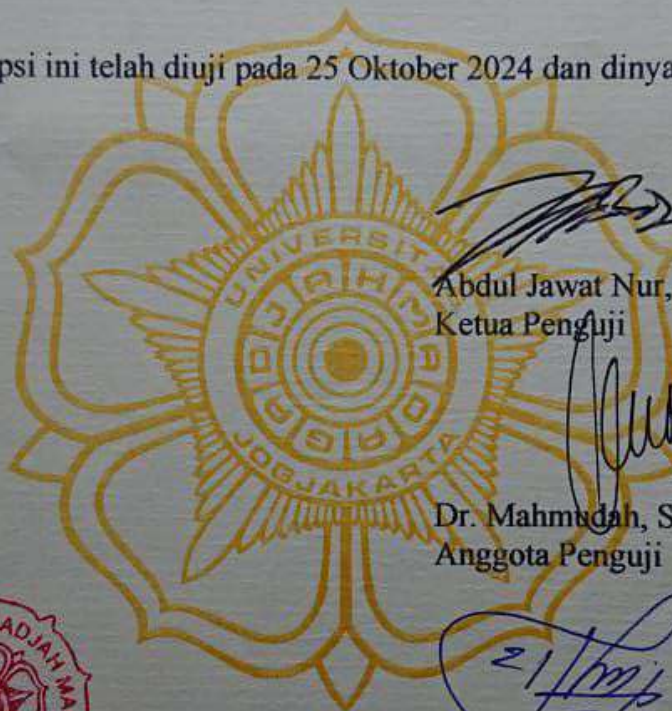 psi ini telah diuji pada 25 Oktober 2024 dan dinya
UNIVERSIT
GADJAH MADA
JOGJAKARTA
Abdul Jawat Nur,
Ketua Penguji
Dr. Mahmudah, S
Anggota Penguji
ADJAH MA